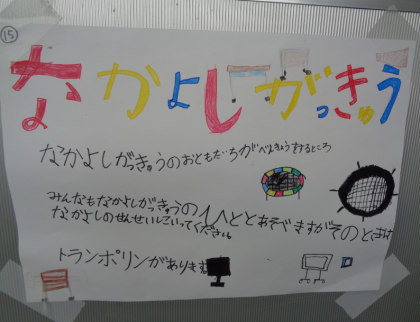 15
なかよしがっきゅう
なかよしがきゅうのおともだちがべんきょうをするところ
みんなもなかよしがきゅうのひととあそべますがそのときは
なかよしのせんせいにいってください。
トランポリンがあります